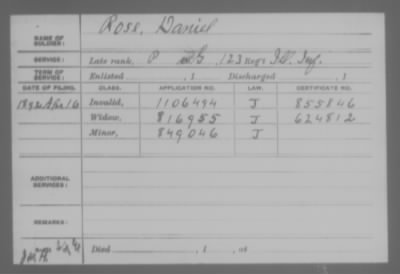 Ross, Daniel
NAME OF SOLDIER:
SERVICE: Late rank, P , 123 Reg't Ill. Inf.
TERM OF SERVICE: Enlisted , 1 Discharged , 1
DATE OF FILING. CLASS. APPLICATION NO. LAW. CERTIFICATE NO.
1892 Apr 16 Invalid, 1106494 J 855846
Widow, 816955 J 624812
Minor, 849046 J
ADDITIONAL SERVICES:
REMARKS:
Died , 1 , at